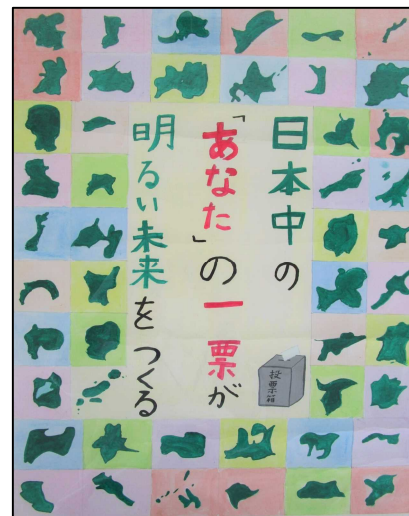 日本中の
「あなた」の一票が
明るい未来をつくる
投票箱